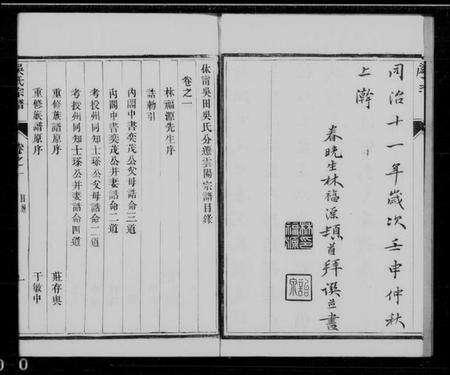 同治十一年歲次壬申仲秋
上澣
春曉生林福源頓首拜譔并書
休甯吳田吳氏分遷雲陽宗譜目錄
卷之一
林福源先生序
誥勅引
內閣中書奕茂公父母誥命三道
內閣中書奕茂公并妻誥命二道
考授州同知士琢公父母誥命二道
考授州同知士琢公并妻誥命四道
重修族譜原序 莊存與
重修族譜原序 于敏中
吳氏宗譜 卷之一 目錄 一
0 0